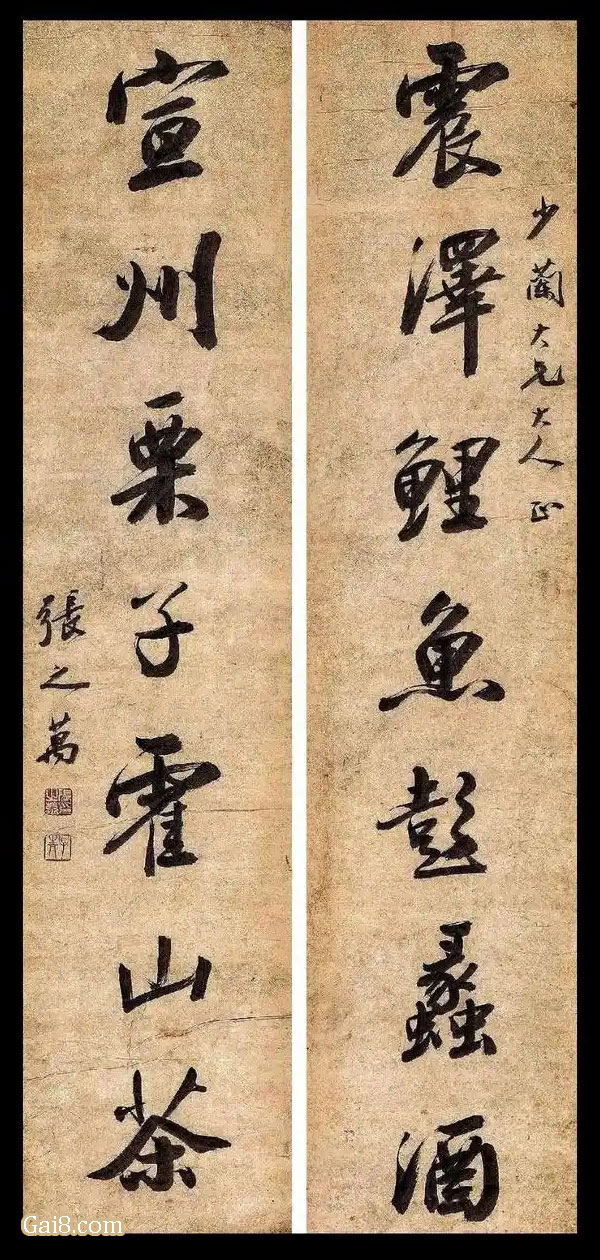 少蘭大兄大人正
震澤鯉魚彭蠡酒
宣州栗子霍山茶
張之萬
Gai8.com